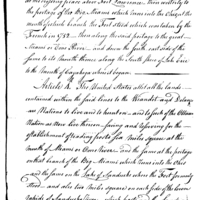 at the crossing place above Fort Lawrence, then westerly to
the portage of the Big Miami which runs into the Ohio, at the
mouth of which branch the Fort stood which was taken by the
French in 1752 – then along the said portage to the great
Miami or Ome River – and down the south east side of the
same to its mouth; thence along the South shore of Lake Erie
to the mouth of Cayahoga where it began.
Article 4. The United States allot all the lands
contained within the said lines to the Wiandot and Delaware
Nations to live and to hunt on – and to such of the Ottawa
Nation as now live thereon – saving and reserving for the
establishment of trading posts six Miles square at the
mouth of Miami or Ome River – and the same at the portage
on that branch of the Big Miami which runs into the Ohio
and the same on the Lake of Sandusky where the Fort formerly
stood – and also two Miles square on each side of the lower